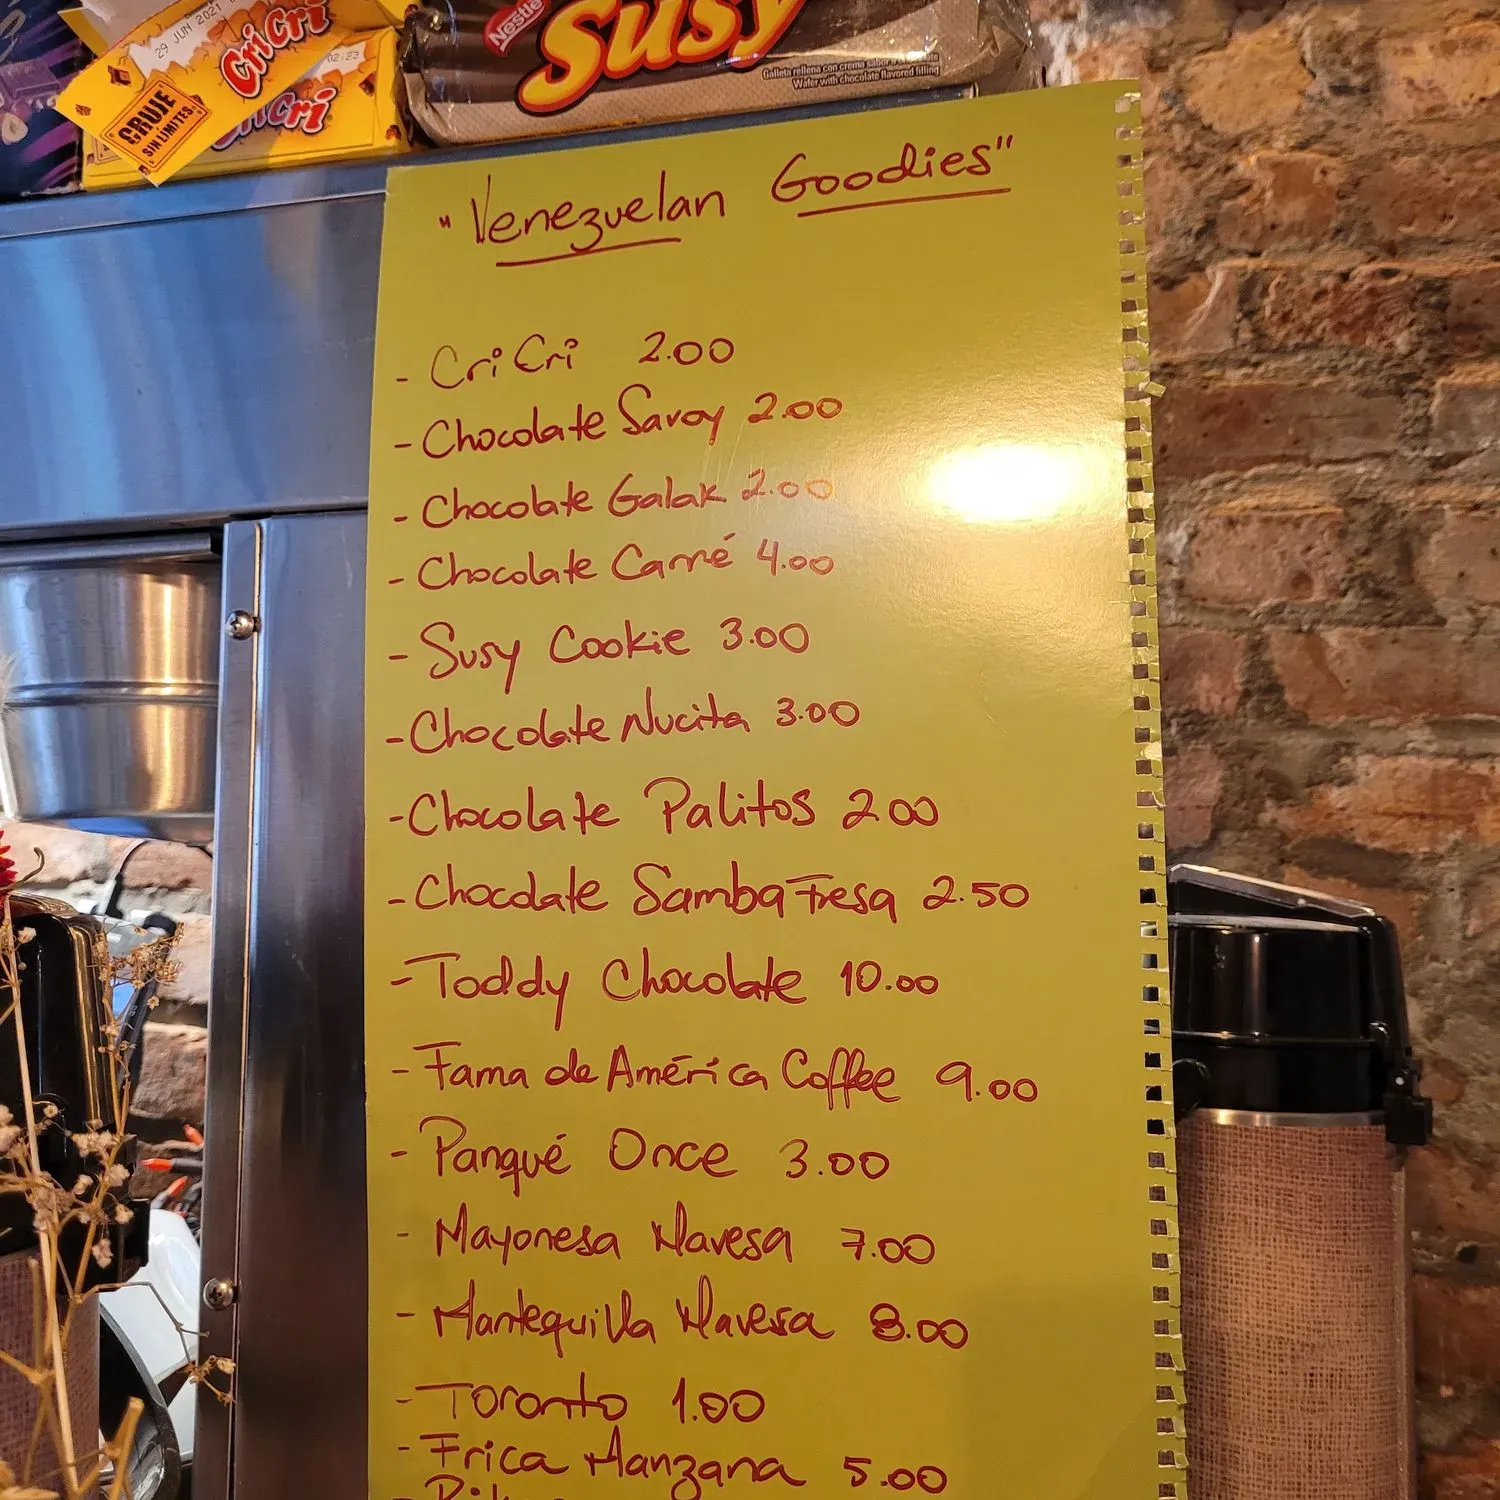 29 JUN 2021
CriCri
02:23
CRUJE
SIN LÍMITES.
CriCri
Nestlé
Susy
Wafer with chocolate flavored filling
"Venezuelan Goodies"
- Cri Cri 2.00
- Chocolate Savoy 2.00
- Chocolate Galak 2.00
- Chocolate Carré 4.00
- Susy Cookie 3.00
- Chocolate Nucita 3.00
- Chocolate Palitos 2.00
- Chocolate Samba Fresa 2.50
- Toddy Chocolate 10.00
- Fama de América Coffee 9.00
- Panqué Once 3.00
- Mayonesa Mavesa 7.00
- Mantequilla Mavesa 8.00
- Toronto 1.00
- Frica Manzana 5.00